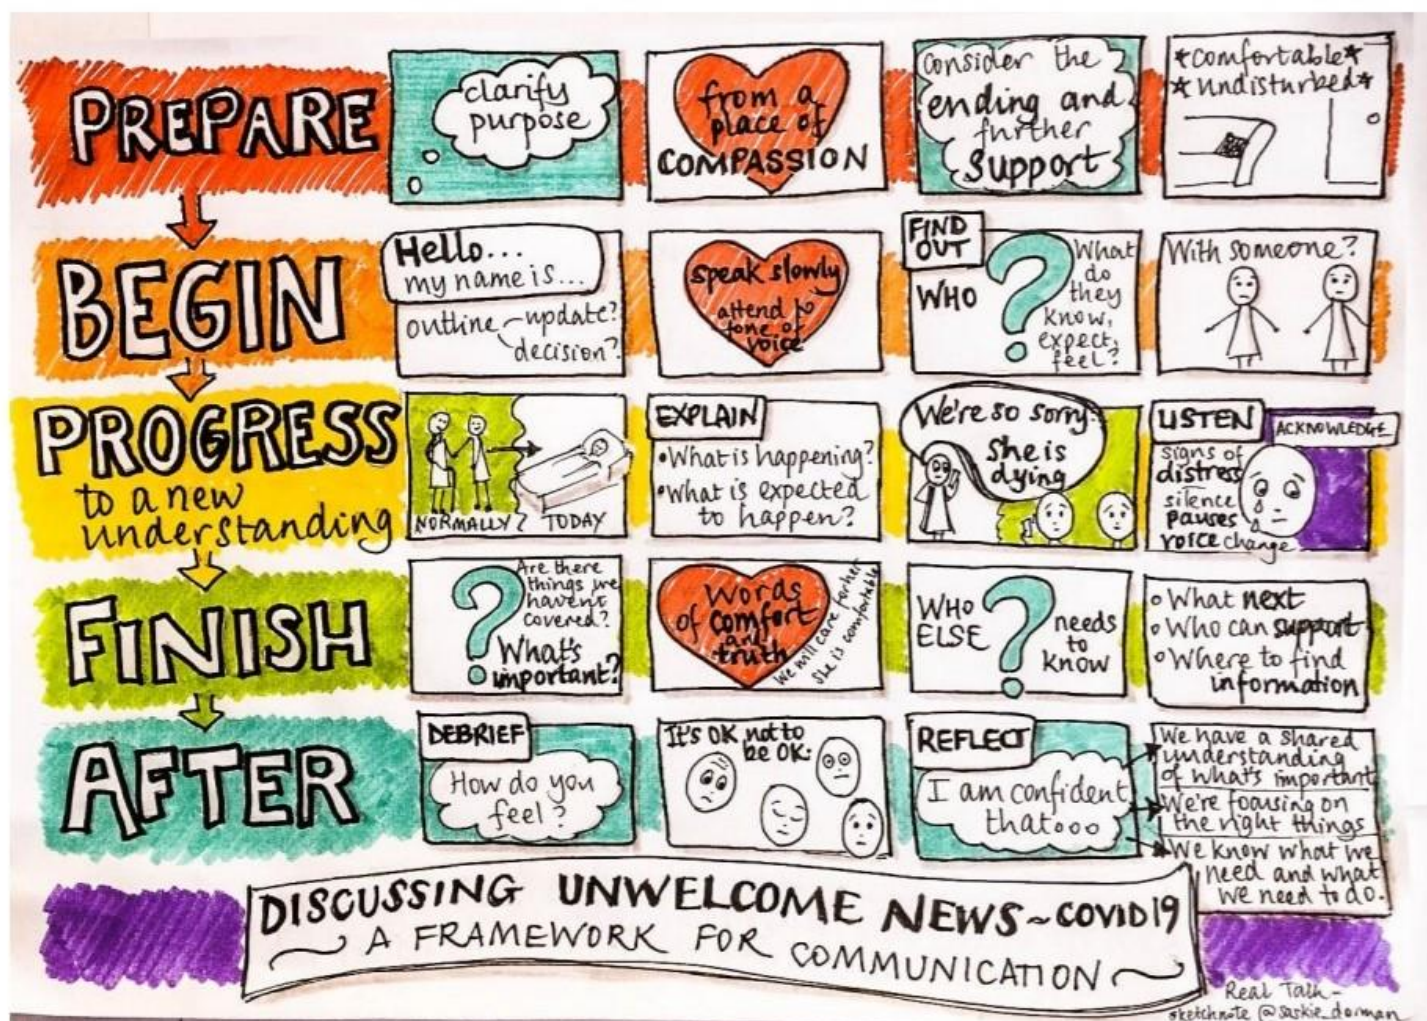 PREPARE
clarify
purpose
from a
place of
COMPASSION
Consider the
ending and
further
Support
*Comfortable*
*Undisturbed*
BEGIN
Hello...
my name is...
outline
update?
decision?
speak slowly
attend to
tone of
voice
FIND
OUT
WHO
?
What
do
they
know,
expect,
feel?
With someone?
PROGRESS
to a new
understanding
NORMALLY?
TODAY
EXPLAIN
•What is happening?
•What is expected
to happen?
We're so sorry.
She is
dying
LISTEN
ACKNOWLEDGE
signs of
distress
silence
pauses
voice change
FINISH
?
Are there
things we
haven't
covered?
What's
important?
Words
of comfort
and
truth
We will care for her
She is comfortable
WHO
ELSE
?
needs
to
know
• What next
• Who can support
• Where to find
information
AFTER
DEBRIEF
How do you
feel?
It's OK not to
be OK.
REFLECT
I am confident
that...
We have a shared
understanding
of what's important
We're focusing on
the right things
We know what we
need and what
we need to do.
DISCUSSING UNWELCOME NEWS ~ COVID19
~ A FRAMEWORK FOR COMMUNICATION ~
Real Talk -
sketchnote @saskie_dorman